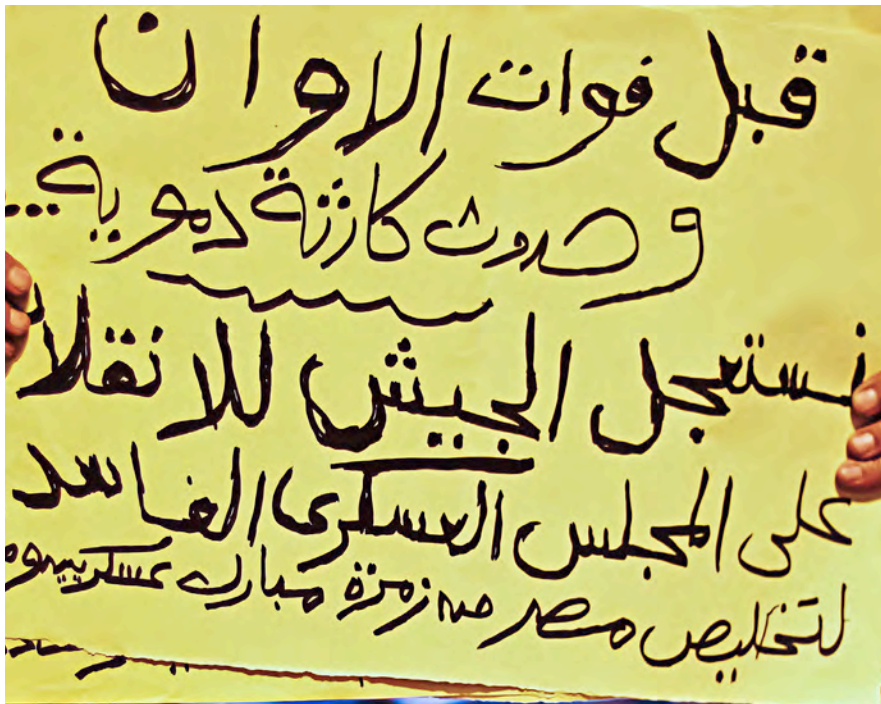 قبل فوات الاوان
وحدوث كارثة دموية...
نستعجل الجيش للانقلا
على المجلس العسكرى الفاسد
لتخليص مصر من زمرة مبارك عسكريين و